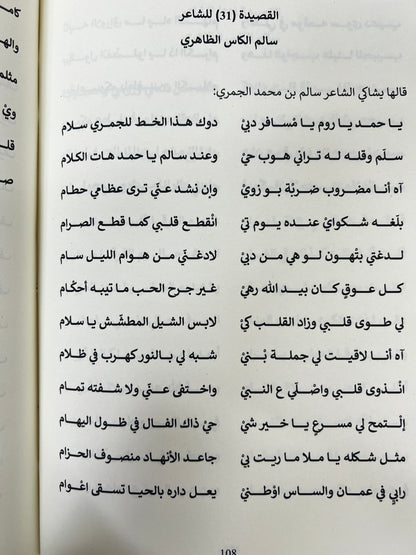 القصيدة (31) للشاعر
سالم الكاس الظاهري
قالها يشاكي الشاعر سالم بن محمد الجمري:
يا حمد يا روم يا مُسافر دبيْ دوك هذا الخط للجمري سلام
سلّم وقله له تراني هوب حيْ وعند سالم يا حمد هات الكلام
آه أنا مضروب ضربٌة بو زويْ وإن نشد عنّي ترى عظامي حطام
بلّغه شكواي عنده يوم تيْ انْقطع قلبي كما قطع الصرام
لدغتي بتْهون لو هي من دبيْ لادغنّي من هوام الليل سام
كل عوقٍ كان بيد الله رهيْ غير جرح الحب ما تيبه أحكام
لي طوى قلبي وزاد القلب كيْ لابس الشيل المطشّش يا سلام
آه أنا لاقيت لي جملة بْنيْ شبه لي بالنور كهرب في ظلام
انْذوى قلبي واصْلي ع النبيْ واختفى عنّي ولا شفته تمام
إلتمح لي مسرعٍ يا خير شيْ حيْ ذاك الفال في ظول اليهام
مثل شكله يا ملا ما ريت بيْ جاعد الأنهاد منصوف الحزام
رابي في عمان والساس اوْطنيْ يعل داره بالحيا تسقى اعْوام
108
كامـ
والهـ
مثلمـ
ويْ
قلـ
صـ